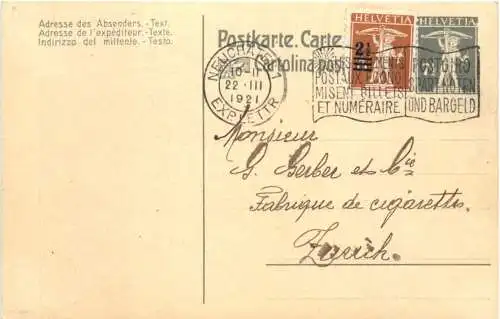 Adresse des Absenders. - Text.
Adresse de l'expéditeur. - Texte.
Indirizzo del mittente. - Testo.
Postkarte. Carte
Cartolina post
HELVETIA HELVETIA
2½
NEUCHÂTEL 1
10-11
22 · III
1921
EXP. LETTR.
POSTAUX ÉCONO
MISENT BILLETS
ET NUMÉRAIRE
POSTGIRO
UND BARGELD
Monsieur
G. Gerber et Cie
Fabrique de cigarettes.
Zurich.